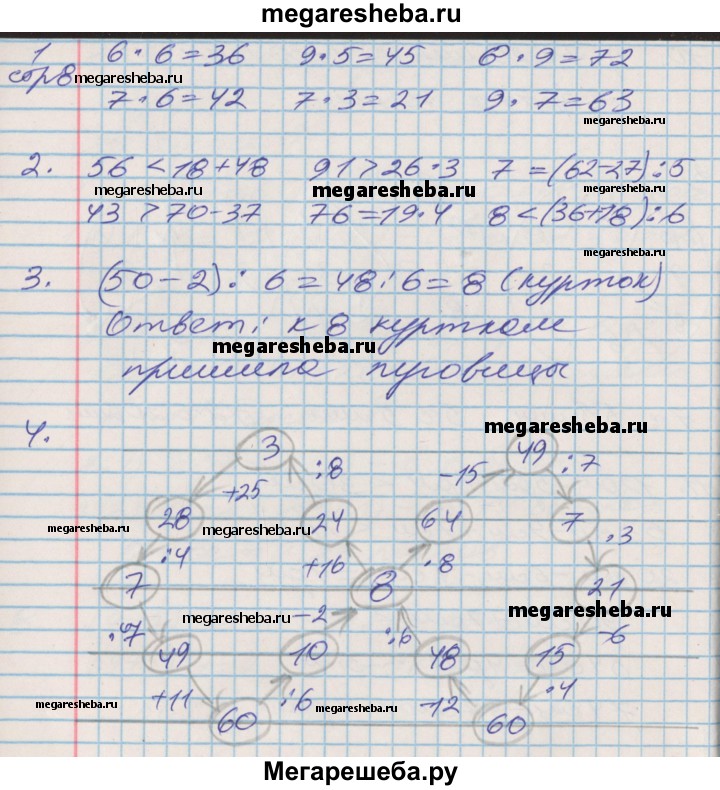 megaresheba.ru
1 6 · 6 = 36 9 · 5 = 45 8 · 9 = 72
стр8 megaresheba.ru
7 · 6 = 42 7 · 3 = 21 9 · 7 = 63
megaresheba.ru
2. 56 < 18 + 48 91 > 26 · 3 7 = (62 - 27) : 5
megaresheba.ru megaresheba.ru megaresheba.ru
43 > 70 - 37 76 = 19 · 4 8 < (36 + 18) : 6
megaresheba.ru
3. (50 - 2) : 6 = 48 : 6 = 8 (курток)
Ответ: к 8 курткам
megaresheba.ru
пришила пуговицы
4. megaresheba.ru
3 :8 -15 49 :7
+25
28 24 64 7
megaresheba.ru megaresheba.ru
:4 +16 ·8 ·3
7 8 21
megaresheba.ru -2 megaresheba.ru
·7 49 10 :6 48 15 -6
+11 :6 -12 ·4
megaresheba.ru megaresheba.ru
60 60
Мегарешеба.ру